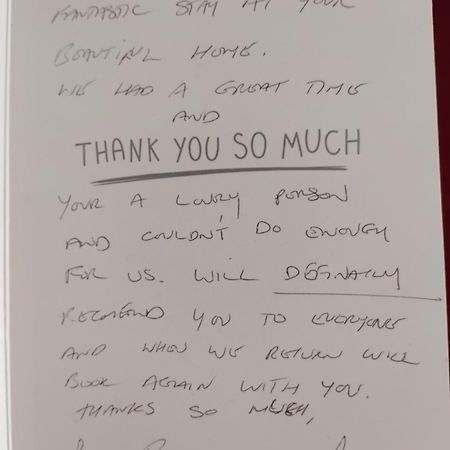 FANTASTIC STAY AT YOUR
BEAUTIFUL HOME.
WE HAD A GREAT TIME
AND
THANK YOU SO MUCH
YOUR A LOVELY PERSON
AND COULDN'T DO ENOUGH
FOR US. WILL DEFINATLY
RECOMEND YOU TO EVERYONE
AND WHEN WE RETURN WILL
BOOK AGAIN WITH YOU.
THANKS SO MUCH,